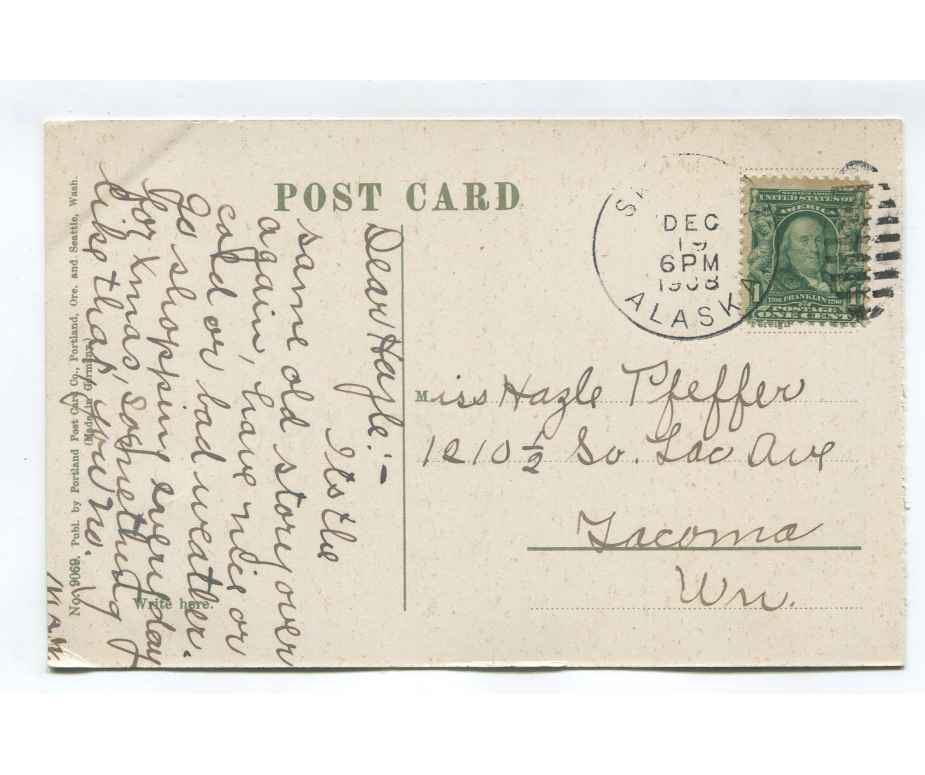 POST CARD
Dear Hazle:-
Its the
same old story over
again, have nice or
cold or bad weather.
Go shopping every day
for xmas, something
like that, you no.
M.A.W.
Write here.
No. 9069. Publ. by Portland Post Card Co., Portland, Ore. and Seattle, Wash.
(Made in Germany.)
DEC
19
6 PM
1908
ALASKA
SERIES 1902
UNITED STATES OF
AMERICA
1706 FRANKLIN 1790
POSTAGE
1 ONE CENT 1
Miss Hazle Pfeffer
1210 ½ So. Lac Ave
Tacoma
Wn.